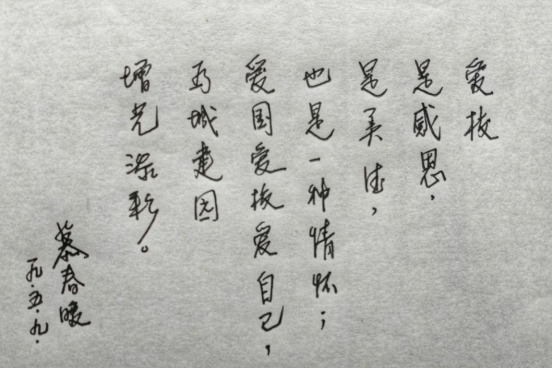 爱校
是感恩,
是美德,
也是一种情怀;
爱国爱校爱自己,
为城建园
增光添彩。
慕春暖
九.五.九.